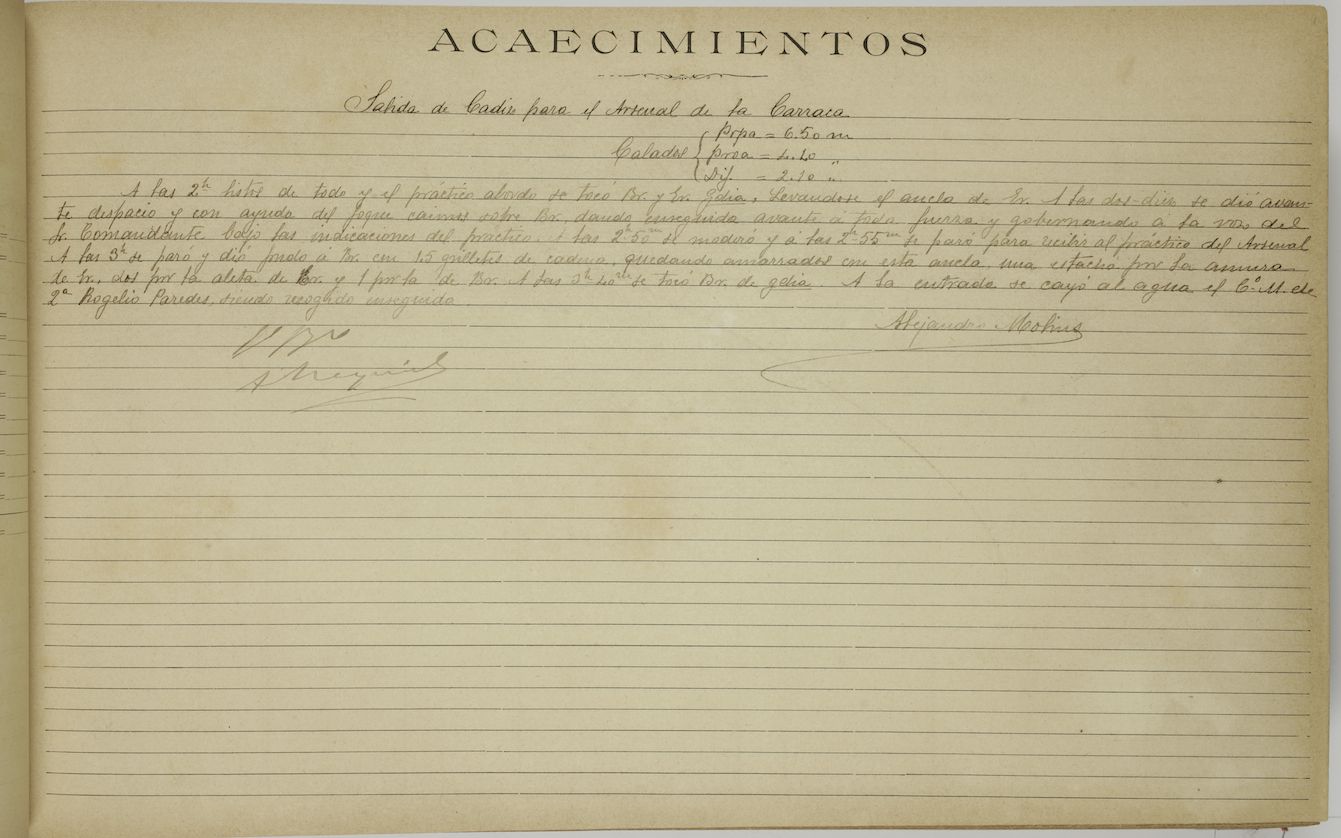 ACAECIMIENTOS
Salida de Cadiz para el Arsenal de la Carraca
Popa = 6.50 m
Calados { proa = 4.40 "
Dif. = 2.10 "
A las 2h listos de todo y el práctico abordo se tocó Br. y Er. gdia, levandose el ancla de Er. A las dos-diez se dió avan-
te despacio y con ayuda del foque caimos sobre Br. dando enseguida avante á toda fuerza y gobernando á la voz del
Sr. Comandante bajo las indicaciones del práctico. A las 2h 50m se moderó y á las 2h 55m se paró para recibir al práctico del Arsenal
A las 3h se paró y dió fondo á Br. con 1.5 grilletes de cadena, quedando amarrados con esta ancla, una estacha por la amura
de Er., dos por la aleta de Er. y 1 por la de Br. A las 3h 40m se tocó Br. de gdia. A la entrada se cayó al agua el Co. M. de
2a Rogelio Paredes, siendo recogido enseguida
Alejandro Molins